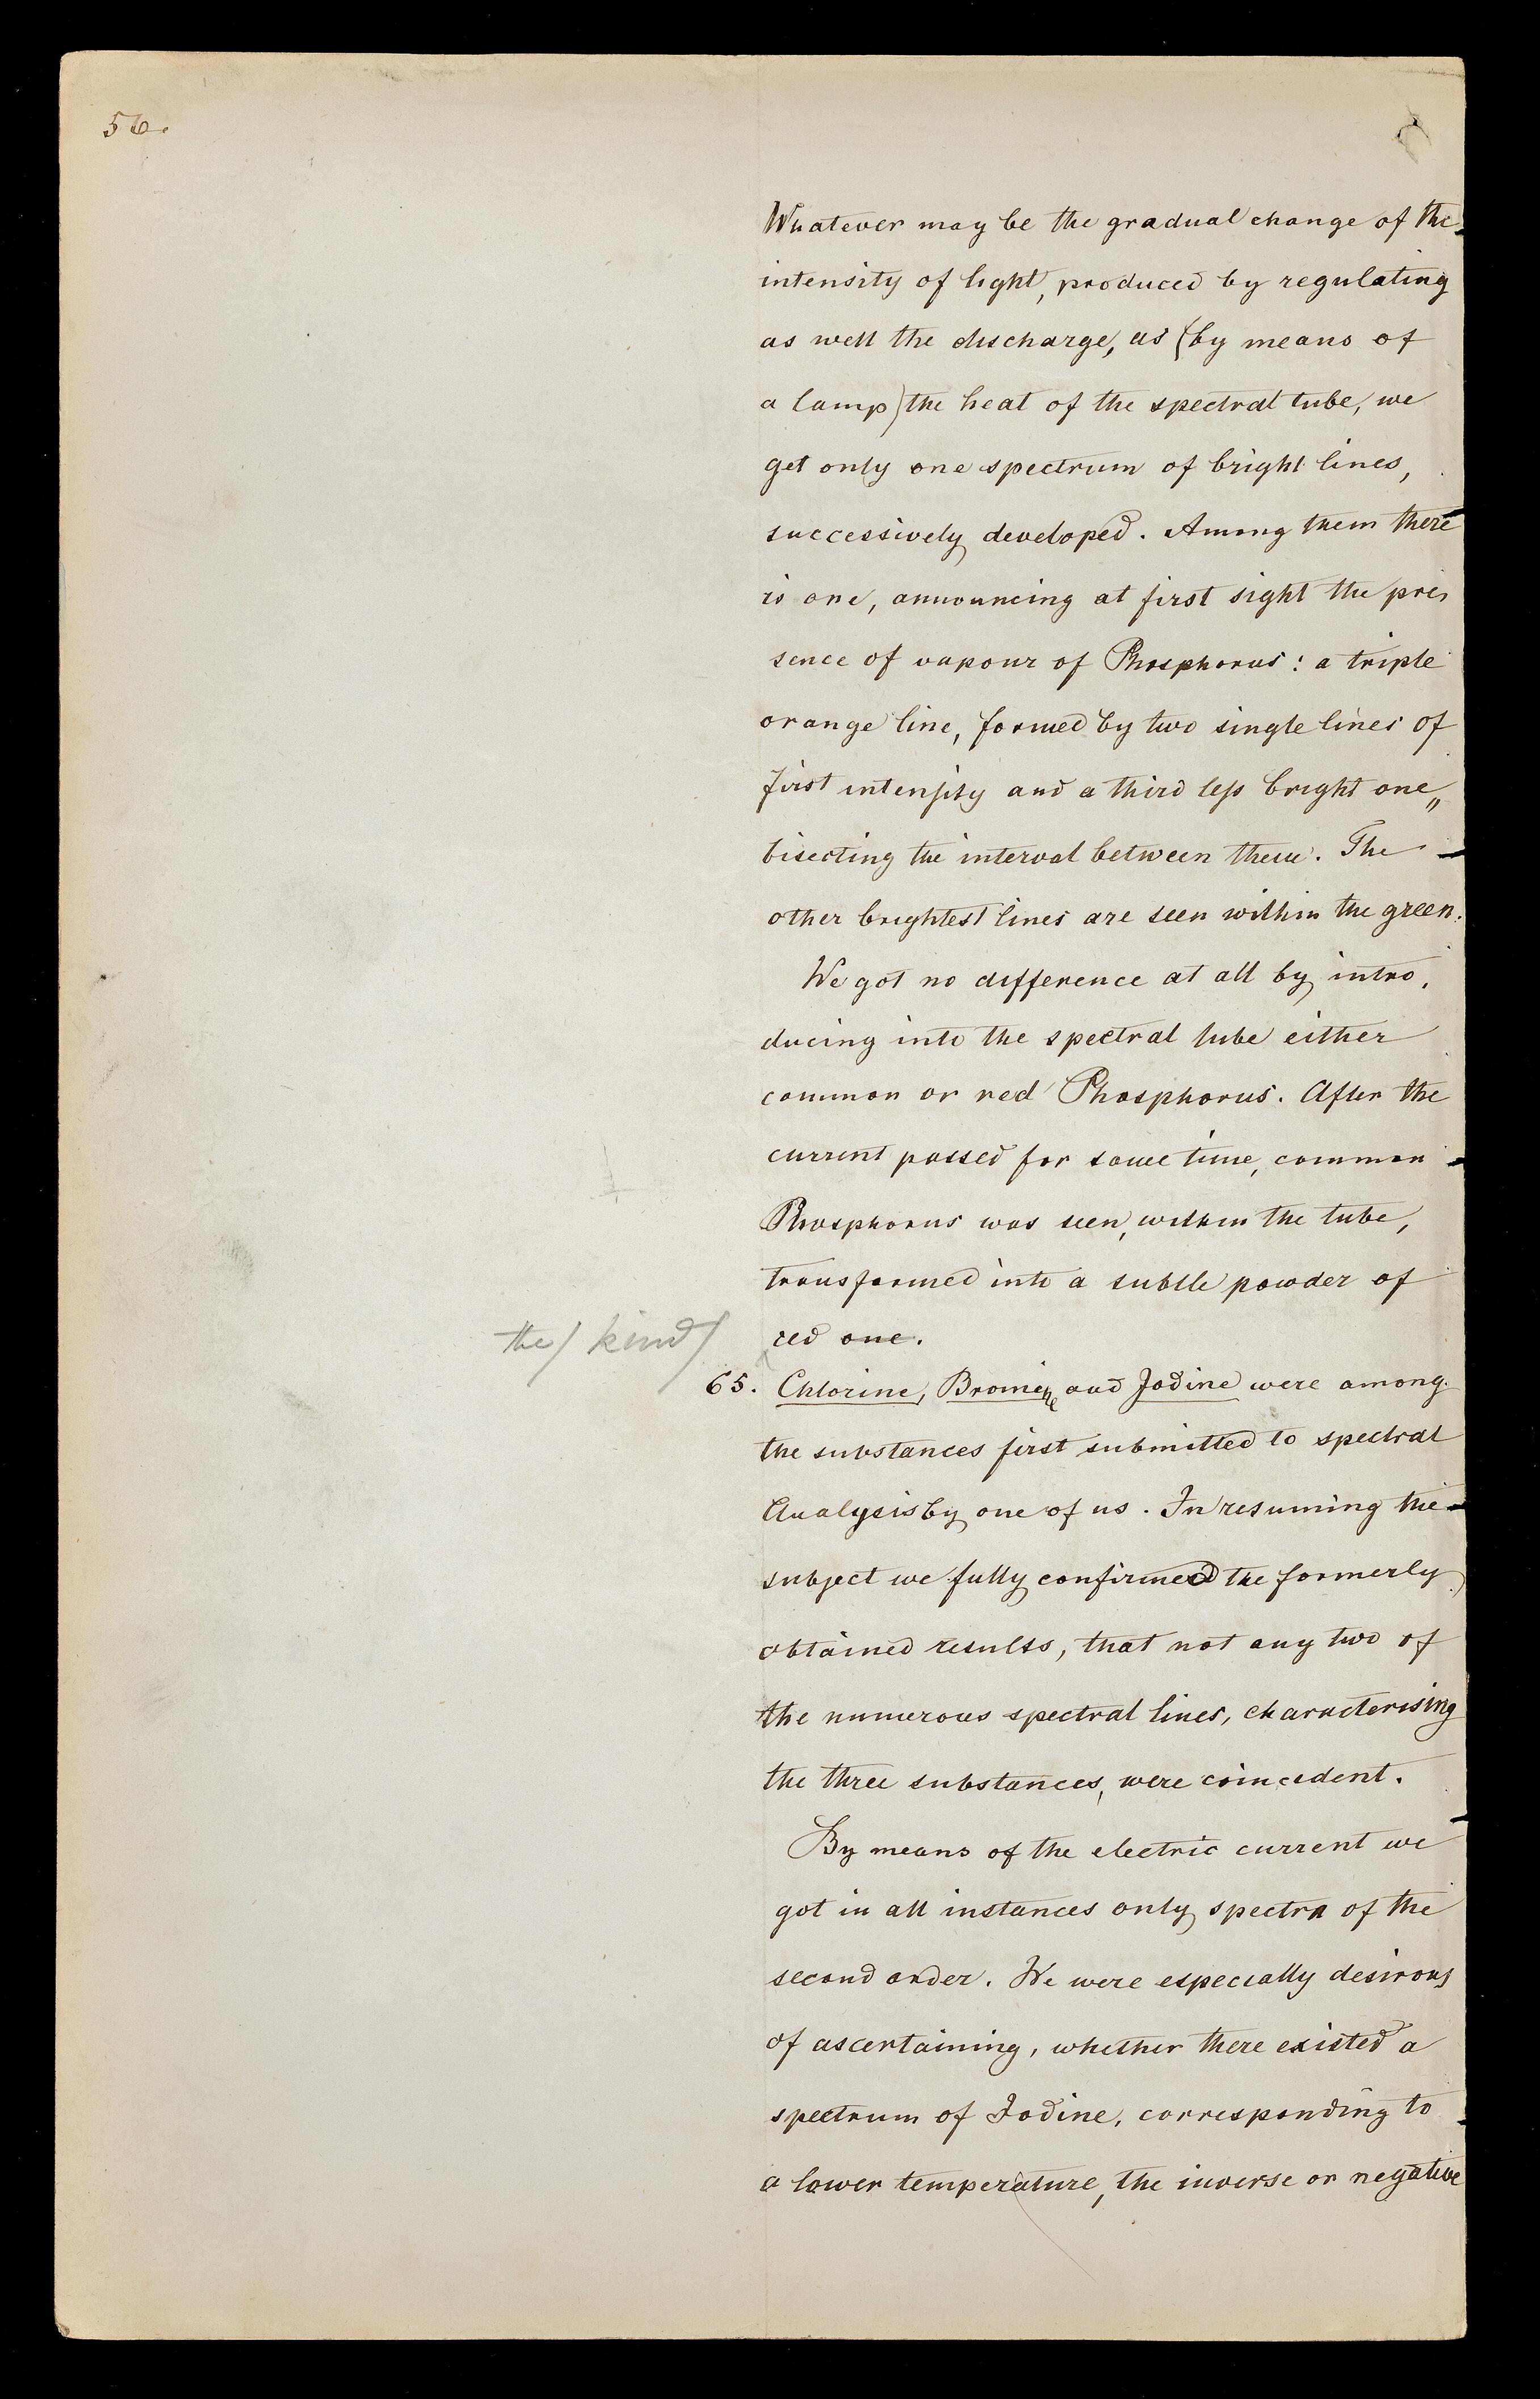 56.
Whatever may be the gradual change of the
intensity of light, produced by regulating
as well the discharge, as (by means of
a lamp) the heat of the spectral tube, we
get only one spectrum of bright lines,
successively developed. Among them there
is one, announcing at first sight the pre,
sence of vapour of Phosphorus: a triple
orange line, formed by two single lines of
first intensity and a third less bright one,,
bisecting the interval between these. The
other brightest lines are seen within the green.
We got no difference at all by intro,
ducing into the spectral tube either
common or red Phosphorus. After the
current passed for some time, common
Phosphorus was seen, within the tube,
transformed into a subtle powder of
the/ kind/ red one.
65. Chlorine, Bromine and Jodine were among
the substances first submitted to spectral
Analysis by one of us. In resuming the
subject we fully confirmed the formerly
obtained results, that not any two of
the numerous spectral lines, characterising
the three substances, were coincident.
By means of the electric current we
got in all instances only spectra of the
second order. We were especially desirous
of ascertaining, whether there existed a
spectrum of Iodine, corresponding to
a lower temperature, the inverse or negative